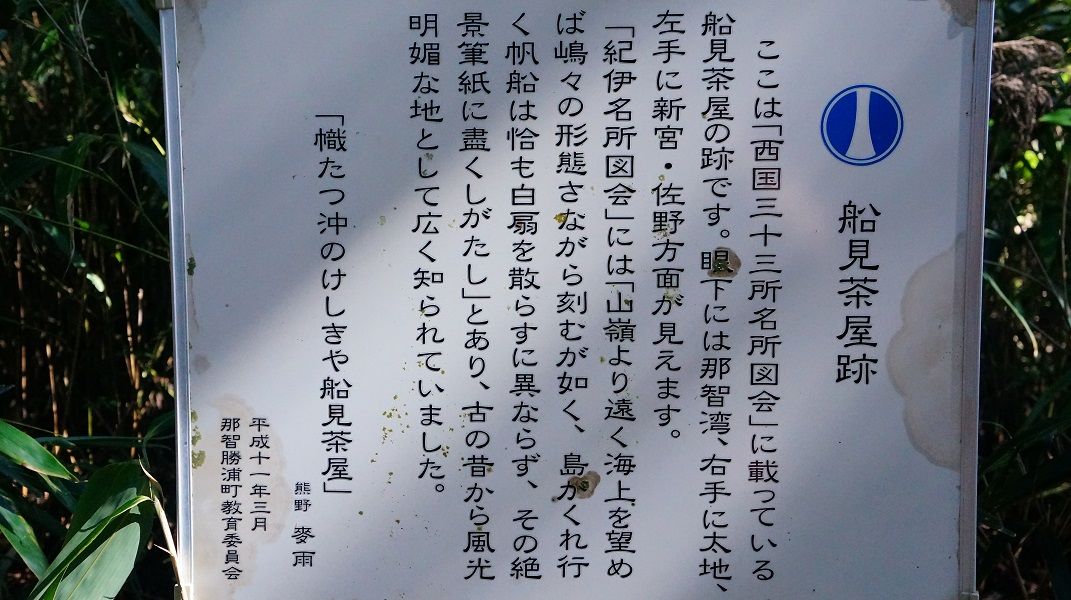 船見茶屋跡
ここは「西国三十三所名所図会」に載っている
船見茶屋の跡です。眼下には那智湾、右手に太地、
左手に新宮・佐野方面が見えます。
「紀伊名所図会」には「山嶺より遠く海上を望め
ば嶋々の形態さながら刻むが如く、島がくれ行
く帆船は恰も白扇を散らすに異ならず、その絶
景筆紙に盡くしがたし」とあり、古の昔から風光
明媚な地として広く知られていました。
「幟たつ沖のけしきや船見茶屋」
熊野 麥雨
平成十一年三月
那智勝浦町教育委員会